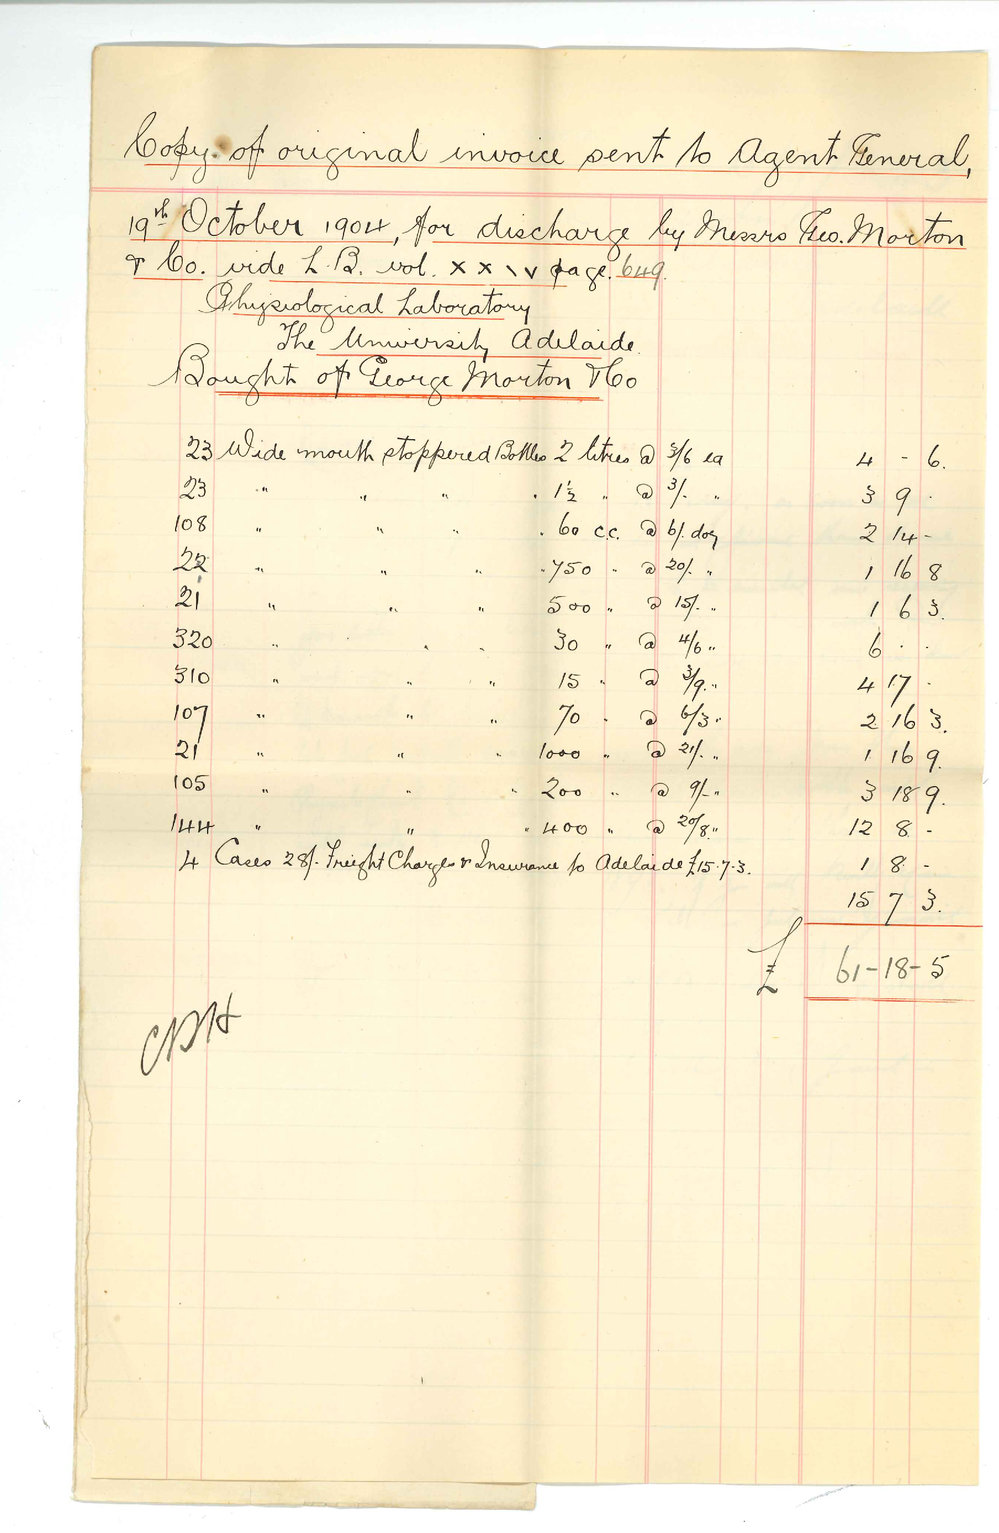 Copy of original invoice sent to Agent General,
19th October 1904, for discharge by Messrs Geo. Morton
& Co. vide L.B. vol. xx\v page. 649.
Physiological Laboratory
The University Adelaide
Bought of George Morton & Co
23 Wide mouth stoppered Bottles 2 litres @ 3/6 ea 4 - 6.
23 " " " . 1½ " @ 3/. " 3 9 .
108 " " " . 60 c.c. @ 6/. doz 2 14 -
22 " " " " 750 " @ 20/. " 1 16 8
21 " " " 500 " @ 15/- " 1 6 3.
320 " " " 30 " @ 4/6 " 6 . .
310 " " " 15 " @ 3/9. " 4 17 .
107 " " " 70 " @ 6/3 " 2 16 3.
21 " " " 1000 " @ 21/- " 1 16 9.
105 " " " 200 " @ 9/- " 3 18 9.
144 " " " 400 " @ 20/8. " 12 8 -
4 Cases 28/- Freight Charges & Insurance to Adelaide £15.7.3. 1 8 -
15 7 3.
£ 61-18-5